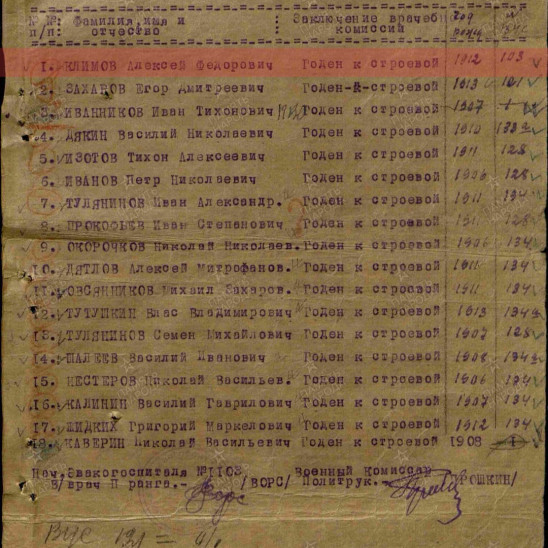 №№ Фамилия, имя и : Заключение врачебн. Год
п/п: отчество : комиссий
1. КЛИМОВ Алексей Федорович Годен к строевой 1912 103
2. ЗАХАРОВ Егор Дмитреевич Годен-к-строевой 1913 121
3. ИВАННИКОВ Иван Тихонович Годен к строевой 1907
4. ДЯКИН Василий Николаевич Годен к строевой 1910 133
5. ИЗОТОВ Тихон Алексеевич Годен к строевой 1911 128
6. ИВАНОВ Петр Николаевич Годен к строевой 1906 128
7. ТУЛЯНИНОВ Иван Александр. Годен к строевой 1911 134
8. ПРОКОФЬЕВ Иван Степанович Годен к строевой 1911 128
9. ОКОРОЧКОВ Николай Николаев. Годен к строевой 1906 134
10. ДЯТЛОВ Алексей Митрофанов. Годен к строевой 134
11. ОВСЯННИКОВ Михаил Захаров. Годен к строевой 1911 134
12. ТУТУШКИН Влас Владимирович Годен к строевой 1913 134
13. ТУЛЯНИНОВ Семен Михайлович Годен к строевой 1907 128
14. ШАЛЕЕВ Василий Иванович Годен к строевой 1908 134
15. НЕСТЕРОВ Николай Васильев. Годен к строевой 1906 134
16. КАЛИНИН Василий Гаврилович Годен к строевой 1907 134
17. ЖИДКИХ Григорий Маркелович Годен к строевой 1912 134
18. КАВЕРИН Николай Васильевич Годен к строевой 1908
Нач. Эвакогоспиталя №1103 Военный Комиссар
в/врач П ранга.- /ВОРС/ Политрук.- /ЕРОШКИН/
ВУС 131 =